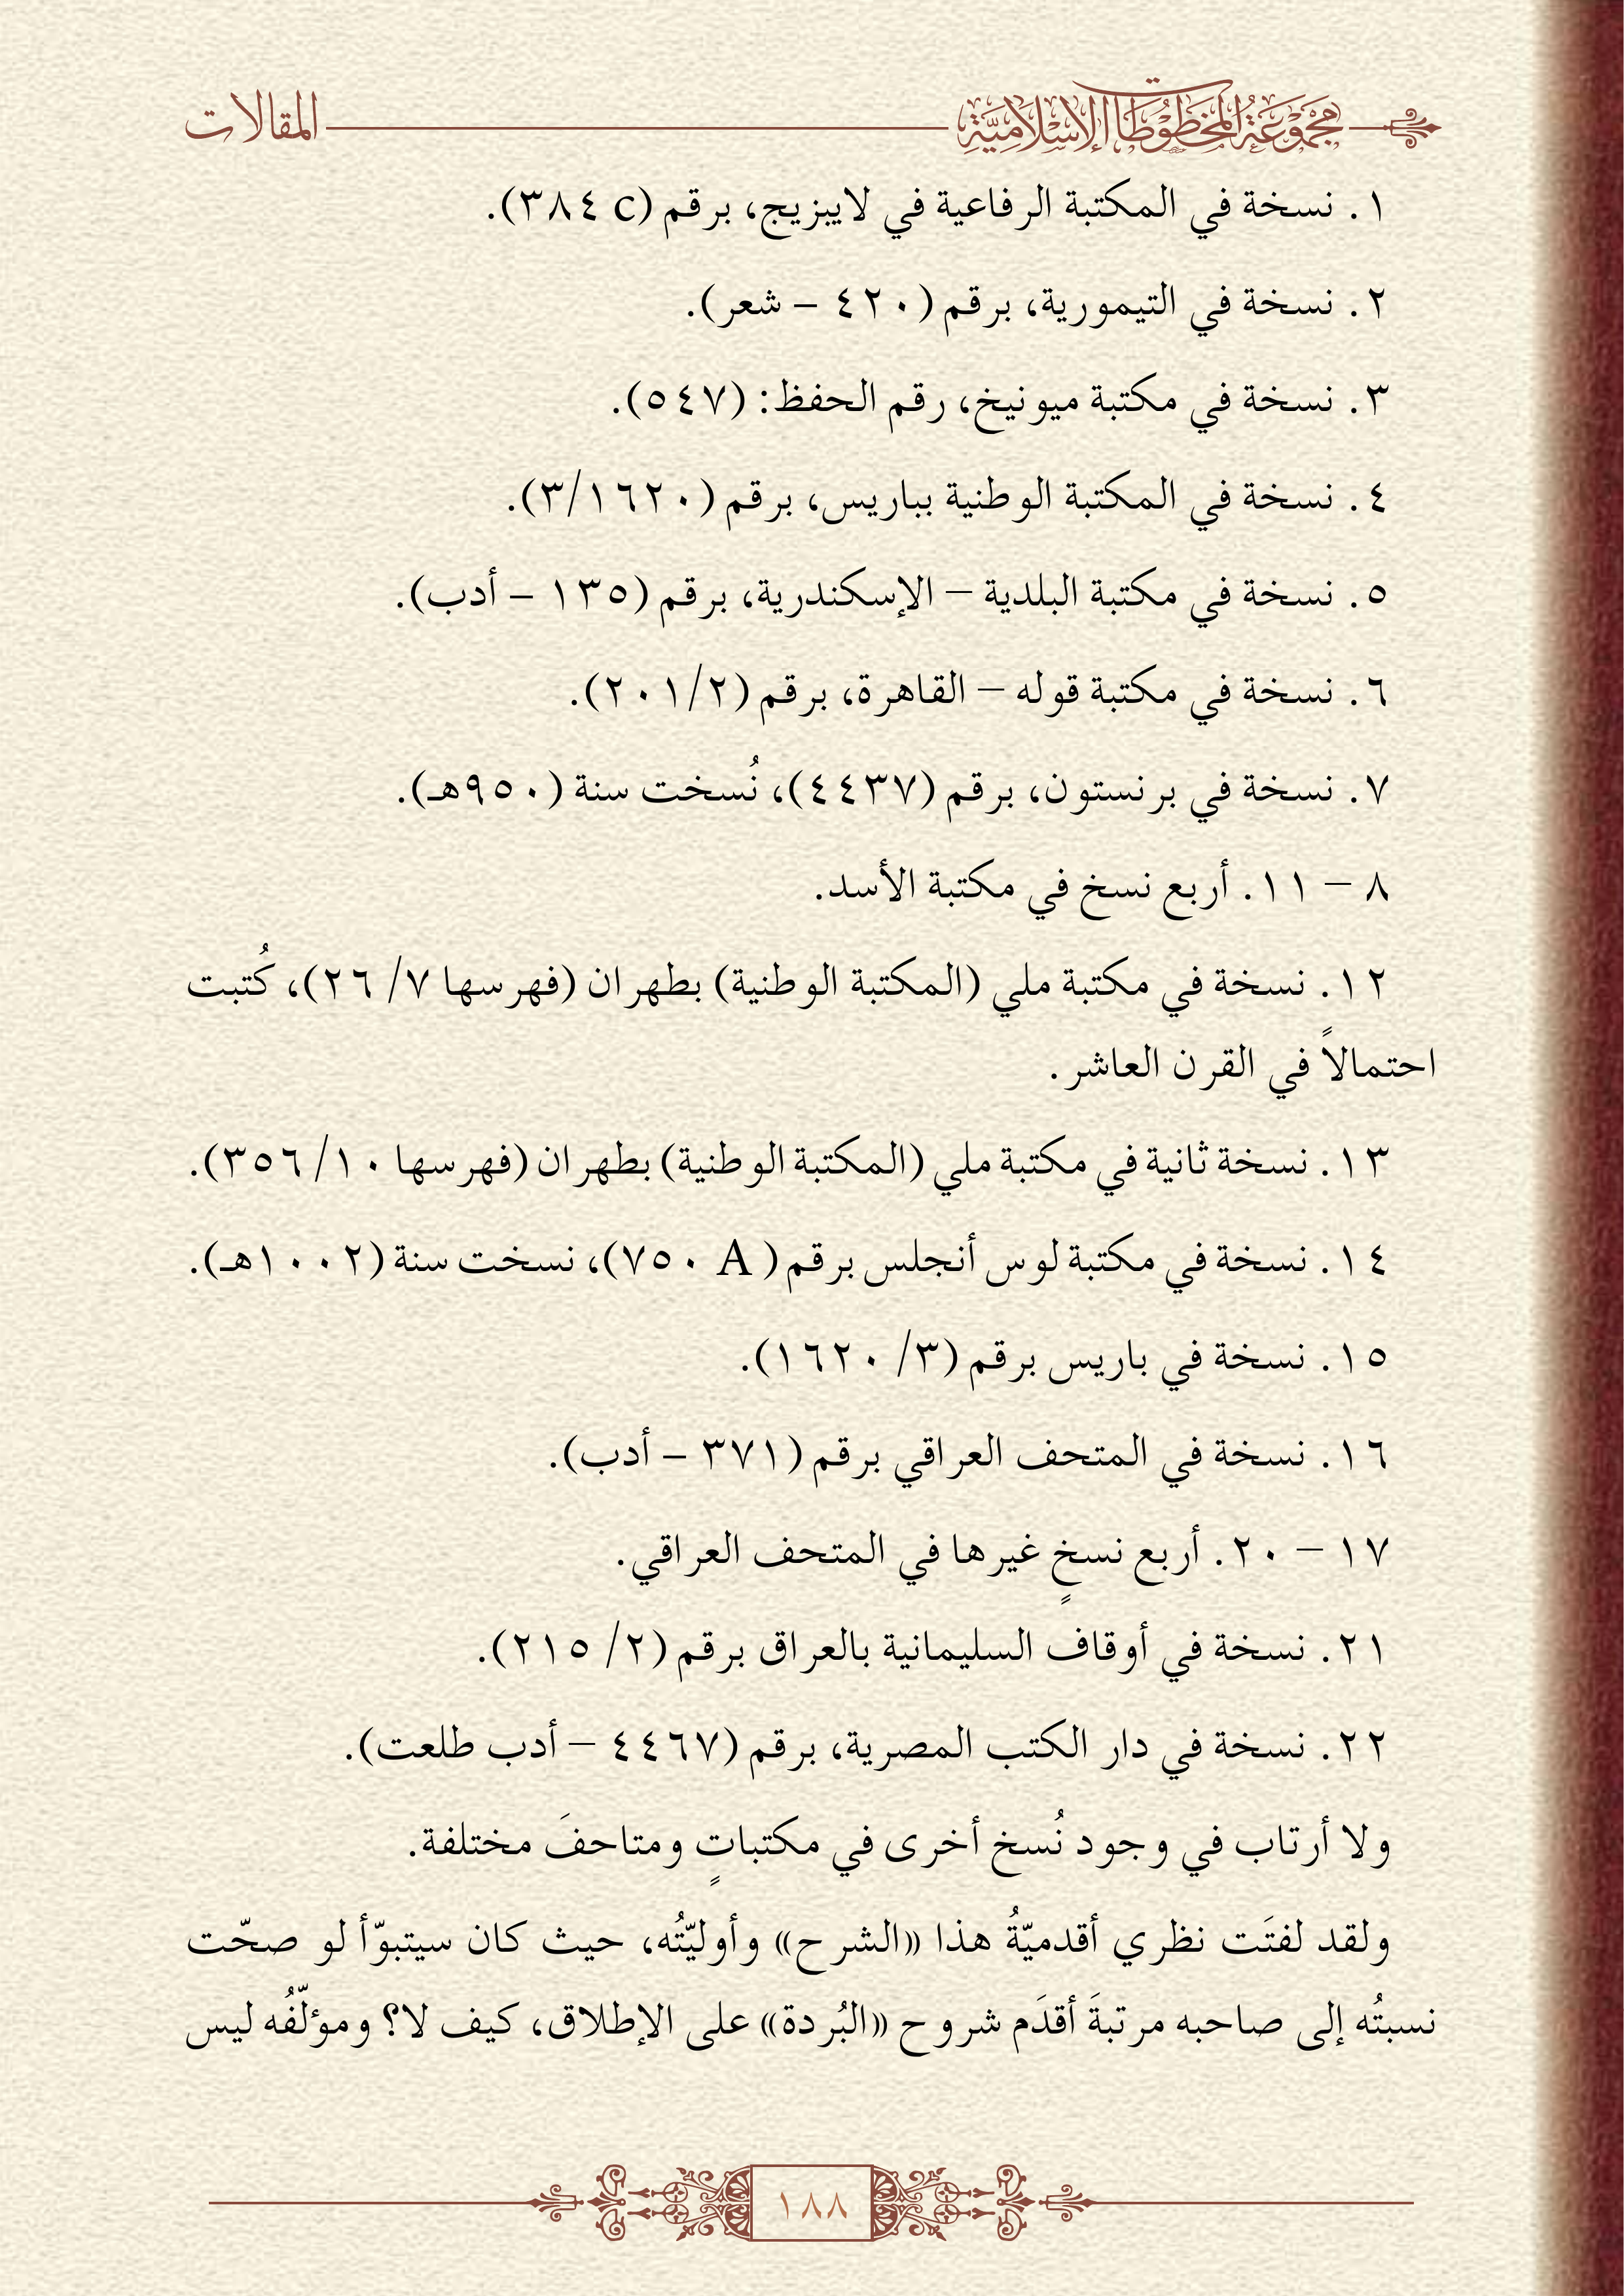 مجموعة المخطوطات الإسلامية
المقالات
١. نسخة في المكتبة الرفاعية في لايبزيج، برقم (٣٨٤ c).
٢. نسخة في التيمورية، برقم (٤٢٠ – شعر).
٣. نسخة في مكتبة ميونيخ، رقم الحفظ: (٥٤٧).
٤. نسخة في المكتبة الوطنية بباريس، برقم (٣/١٦٢٠).
٥. نسخة في مكتبة البلدية – الإسكندرية، برقم (١٣٥ – أدب).
٦. نسخة في مكتبة قوله – القاهرة، برقم (٢٠١/٢).
٧. نسخة في برنستون، برقم (٤٤٣٧)، نُسخت سنة (٩٥٠هـ).
٨ – ١١. أربع نسخ في مكتبة الأسد.
١٢. نسخة في مكتبة ملي (المكتبة الوطنية) بطهران (فهرسها ٧/ ٢٦)، كُتبت
احتمالاً في القرن العاشر.
١٣. نسخة ثانية في مكتبة ملي (المكتبة الوطنية) بطهران (فهرسها ١٠/ ٣٥٦).
١٤. نسخة في مكتبة لوس أنجلس برقم ( A ٧٥٠)، نسخت سنة (١٠٠٢هـ).
١٥. نسخة في باريس برقم (٣/ ١٦٢٠).
١٦. نسخة في المتحف العراقي برقم (٣٧١ – أدب).
١٧ – ٢٠. أربع نسخٍ غيرها في المتحف العراقي.
٢١. نسخة في أوقاف السليمانية بالعراق برقم (٢/ ٢١٥).
٢٢. نسخة في دار الكتب المصرية، برقم (٤٤٦٧ – أدب طلعت).
ولا أرتاب في وجود نُسخ أخرى في مكتباتٍ ومتاحفَ مختلفة.
ولقد لفتَت نظري أقدميّةُ هذا «الشرح» وأوليّتُه، حيث كان سيتبوّأ لو صحّت
نسبتُه إلى صاحبه مرتبةَ أقدَم شروح «البُردة» على الإطلاق، كيف لا؟ ومؤلّفُه ليس
١٨٨